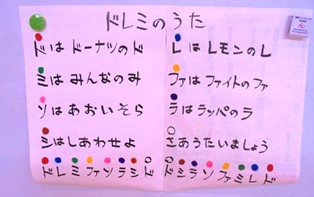 ドレミのうた
ドは ドーナツのド
レは レモンのレ
ミは みんなのみ
ファは ファイトのファ
ソは あおいそら
ラは ラッパのラ
シは しあわせよ
さあうたいましょう
ドレミファソラシド
ドシラソファミレド